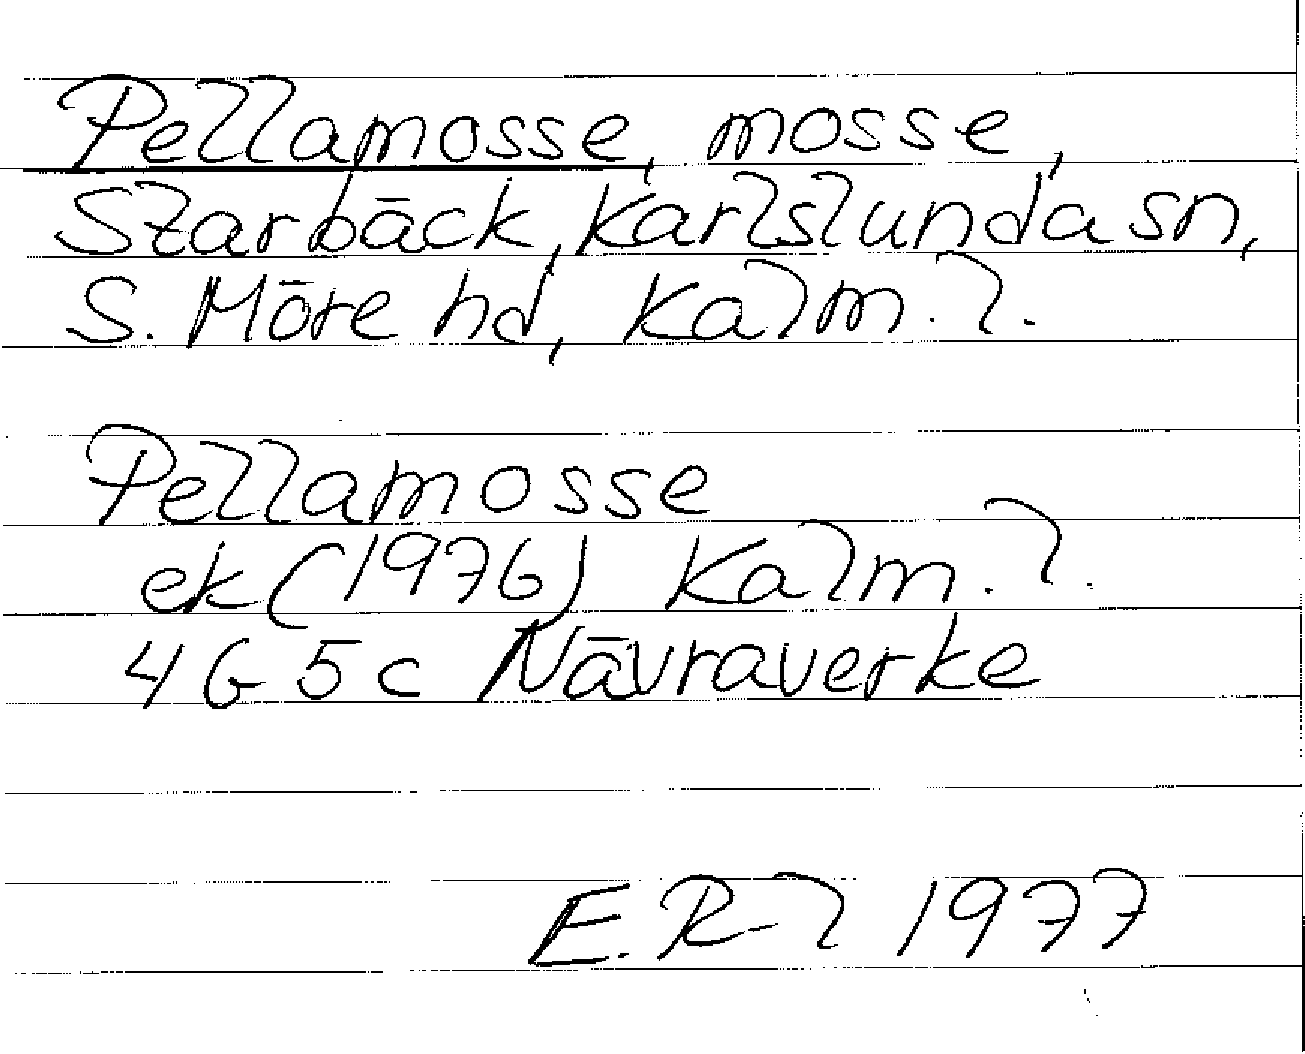 Pellamosse, mosse,
Starbäck, Karlslunda sn,
S. Möre hd, Kalm. l.
Pellamosse
ek (1976) Kalm. l.
4G 5c Nävraverke
E. R-l 1977